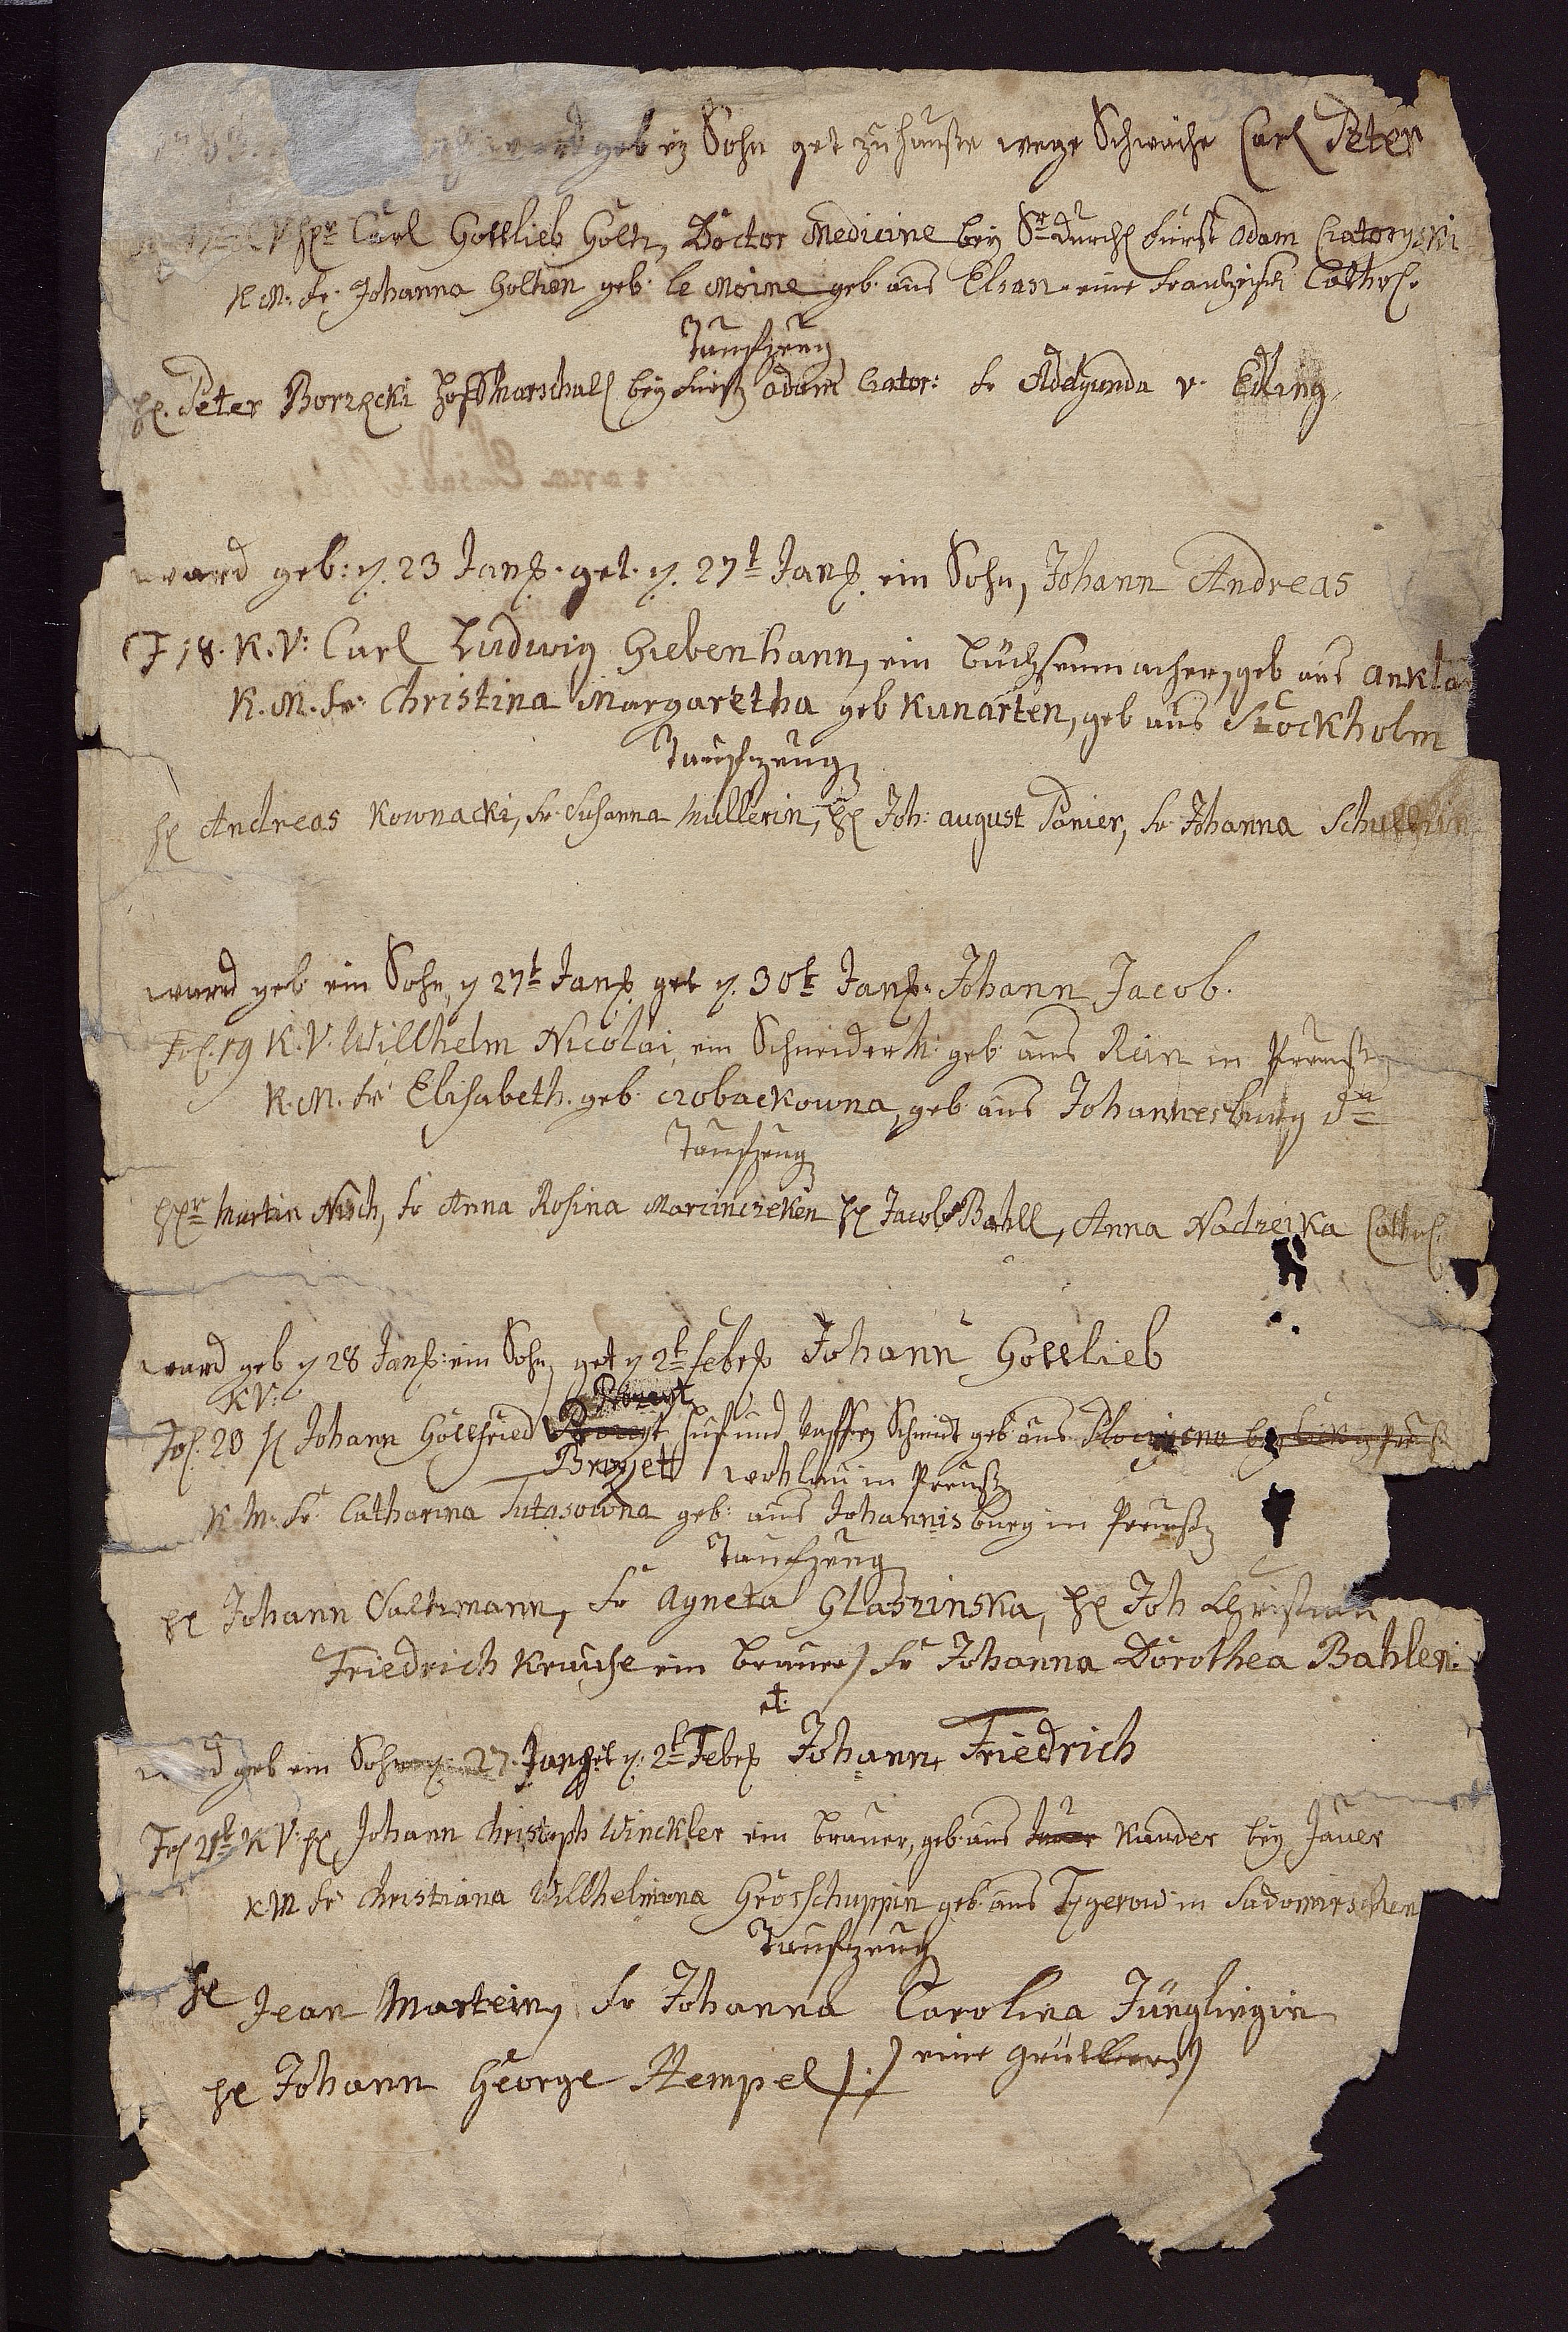 ward geb ein Sohn get zu hause wege Schwäche Carl Peter
K V Hr Carl Gottlieb Goltz, Doctor Medicine bey Sr Durchl Fürst Adam Czatoryski
K. M. Fr. Johanna Goltzen geb. le Moine geb. aus Elsas eine Frantzösisch Cathol.
Taufzeug
H. Peter Borzęcki Hoffmarschall bey Fürst Adam Czator: Fr Adelgunda v. Edling
ward geb: d. 23 Janr. get. d. 27t Janr. ein Sohn, Johann Andreas
F 18. K. V: Carl Ludwig Giebenhann, ein Büchsenmacher, geb aus Ankla
K. M. Fr: Christina Margaretha geb Kunarten, geb aus Stockholm
Taufzeug
H Andreas Kownacki, Fr. Susanna Mullerin, H Joh: August Panier, Fr Johanna Schullzin
ward geb ein Sohn, d 27t Janr get d. 30t Janr. Johann Jacob.
Fol. 19 K. V. Willhelm Nicolai, ein Schneider M. geb aus Rein in Preusse
K. M. Fr Elisabeth. geb. crobackowna, geb aus Johannesburg do
Taufzeug
Hr Martin Nisch, Fr Anna Rosina Marcinczeken H Jacob Bahll, Anna Nadzeika Cathol.
ward geb d 28 Janr: ein Sohn get d 2t Febr Johann Gottlieb
KV: Broeyt
Fol. 20 H Johann Gottfried Broeyt Huf und Waffen Schmidt geb aus
Broyett wohlau in Preusse
K M. Fr Catharina Tutasowna geb: aus Johannisburg in Preusse
Taufzeug
H Johann Saltzmann, Fr Agneta Glaszinska, H Joh Christian
Friedrich Krause ein Brauer) Fr Johanna Dorothea Bahlen:
et.
ward geb ein Sohn d. 27. Janr get d. 2t Febr Johann Friedrich
Fol 21t K V: H Johann Christoph Winckler ein Brauer, geb. aus Jauer Kauder bey Jauer
K M Fr Christiana Willhelmina Grotschuppin geb. aus Tygerow in Sadomirschen
Taufzeug
H Jean Martein, Fr Johanna Carolina Jünglingin
H Johann George Stempel) .) eine